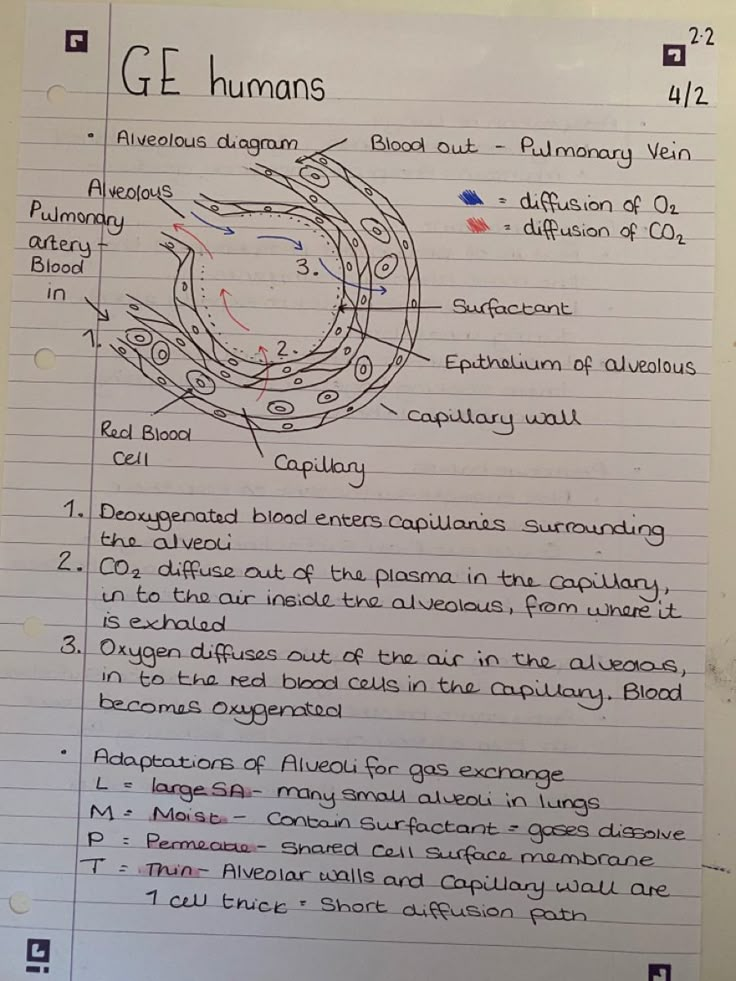 2.2
GE humans
4/2
• Alveolous diagram
Blood out - Pulmonary Vein
Alveolous
Pulmonary
artery -
Blood
in
= diffusion of O₂
= diffusion of CO₂
3.
Surfactant
1.
2.
Epithelium of alveolous
Capillary wall
Red Blood
Cell
Capillary
1. Deoxygenated blood enters capillaries surrounding
the alveoli
2. CO₂ diffuse out of the plasma in the capillary,
in to the air inside the alveolous, from where it
is exhaled
3. Oxygen diffuses out of the air in the alveolas,
in to the red blood cells in the capillary. Blood
becomes oxygenated
• Adaptations of Alveoli for gas exchange
L = large SA - many small alveoli in lungs
M = Moist - Contain surfactant = gases dissolve
P = Permeable - Shared cell surface membrane
T = Thin - Alveolar walls and capillary wall are
1 cell thick = Short diffusion path